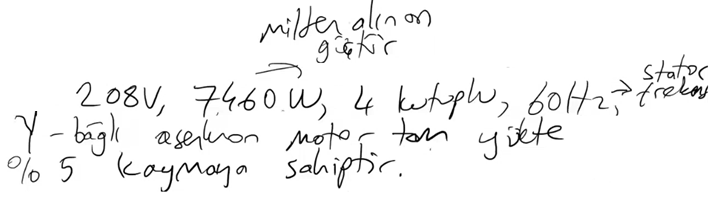 milden alınan
güçtür
208V, 7460 W, 4 kutuplu, 60Hz, → stator frekansı
Y - bağlı asenkron motor tam yükte
%5 kaymaya sahiptir.